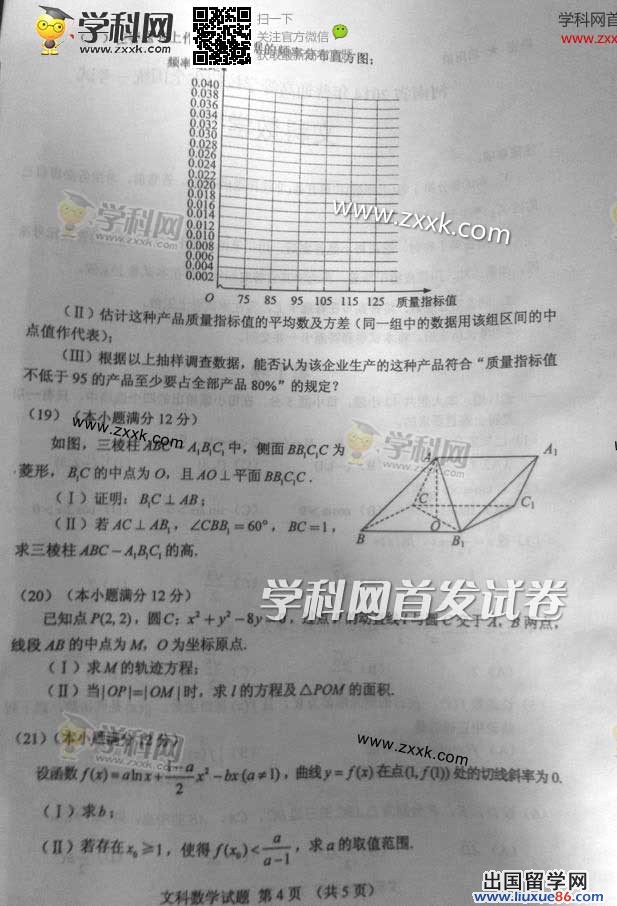 学科网
www.zxxk.com
扫一下
关注官方微信
学科网首
www.zxx
的频率分布直方图:
频率
0.040
0.038
0.036
0.034
0.032
0.030
0.028
0.026
0.024
0.022
0.020
0.018
0.016
0.014
0.012
0.010
0.008
0.006
0.004
0.002
学科网
www.zxxk.com
www.zxxk.com
O 75 85 95 105 115 125 质量指标值
(Ⅱ)估计这种产品质量指标值的平均数及方差(同一组中的数据用该组区间的中
点值作代表);
(Ⅲ)根据以上抽样调查数据,能否认为该企业生产的这种产品符合“质量指标值
不低于 95 的产品至少要占全部产品 80%”的规定?
(19)(本小题满分 12 分)
www.zxxk.com
学科网
www.zxxk.com
如图,三棱柱 ABC－A₁B₁C₁ 中,侧面 BB₁C₁C 为
菱形,B₁C 的中点为 O,且 AO⊥平面 BB₁C₁C.
(Ⅰ)证明:B₁C⊥AB;
(Ⅱ)若 AC⊥AB₁,∠CBB₁=60°,BC=1,
求三棱柱 ABC－A₁B₁C₁ 的高.
A
A₁
C
C₁
O
B
B₁
(20)(本小题满分 12 分)
学科网首发试卷
已知点 P(2,2),圆 C:x²+y²-8y 交于 A,B 两点,
线段 AB 的中点为 M,O 为坐标原点.
(Ⅰ)求 M 的轨迹方程;
(Ⅱ)当|OP|=|OM|时,求 l 的方程及△POM 的面积.
学科网
www.zxxk.com
www.zxxk.com
(21)(本小题满分 12 分)
设函数 f(x)=alnx+\frac{1-a}{2}x²-bx(a≠1),曲线 y=f(x)在点(1,f(1))处的切线斜率为 0.
(Ⅰ)求 b;
(Ⅱ)若存在 x₀≥1,使得 f(x₀)<\frac{a}{a-1},求 a 的取值范围.
文科数学试题 第 4 页 (共 5 页)
出国留学网
www.liuxue86.com